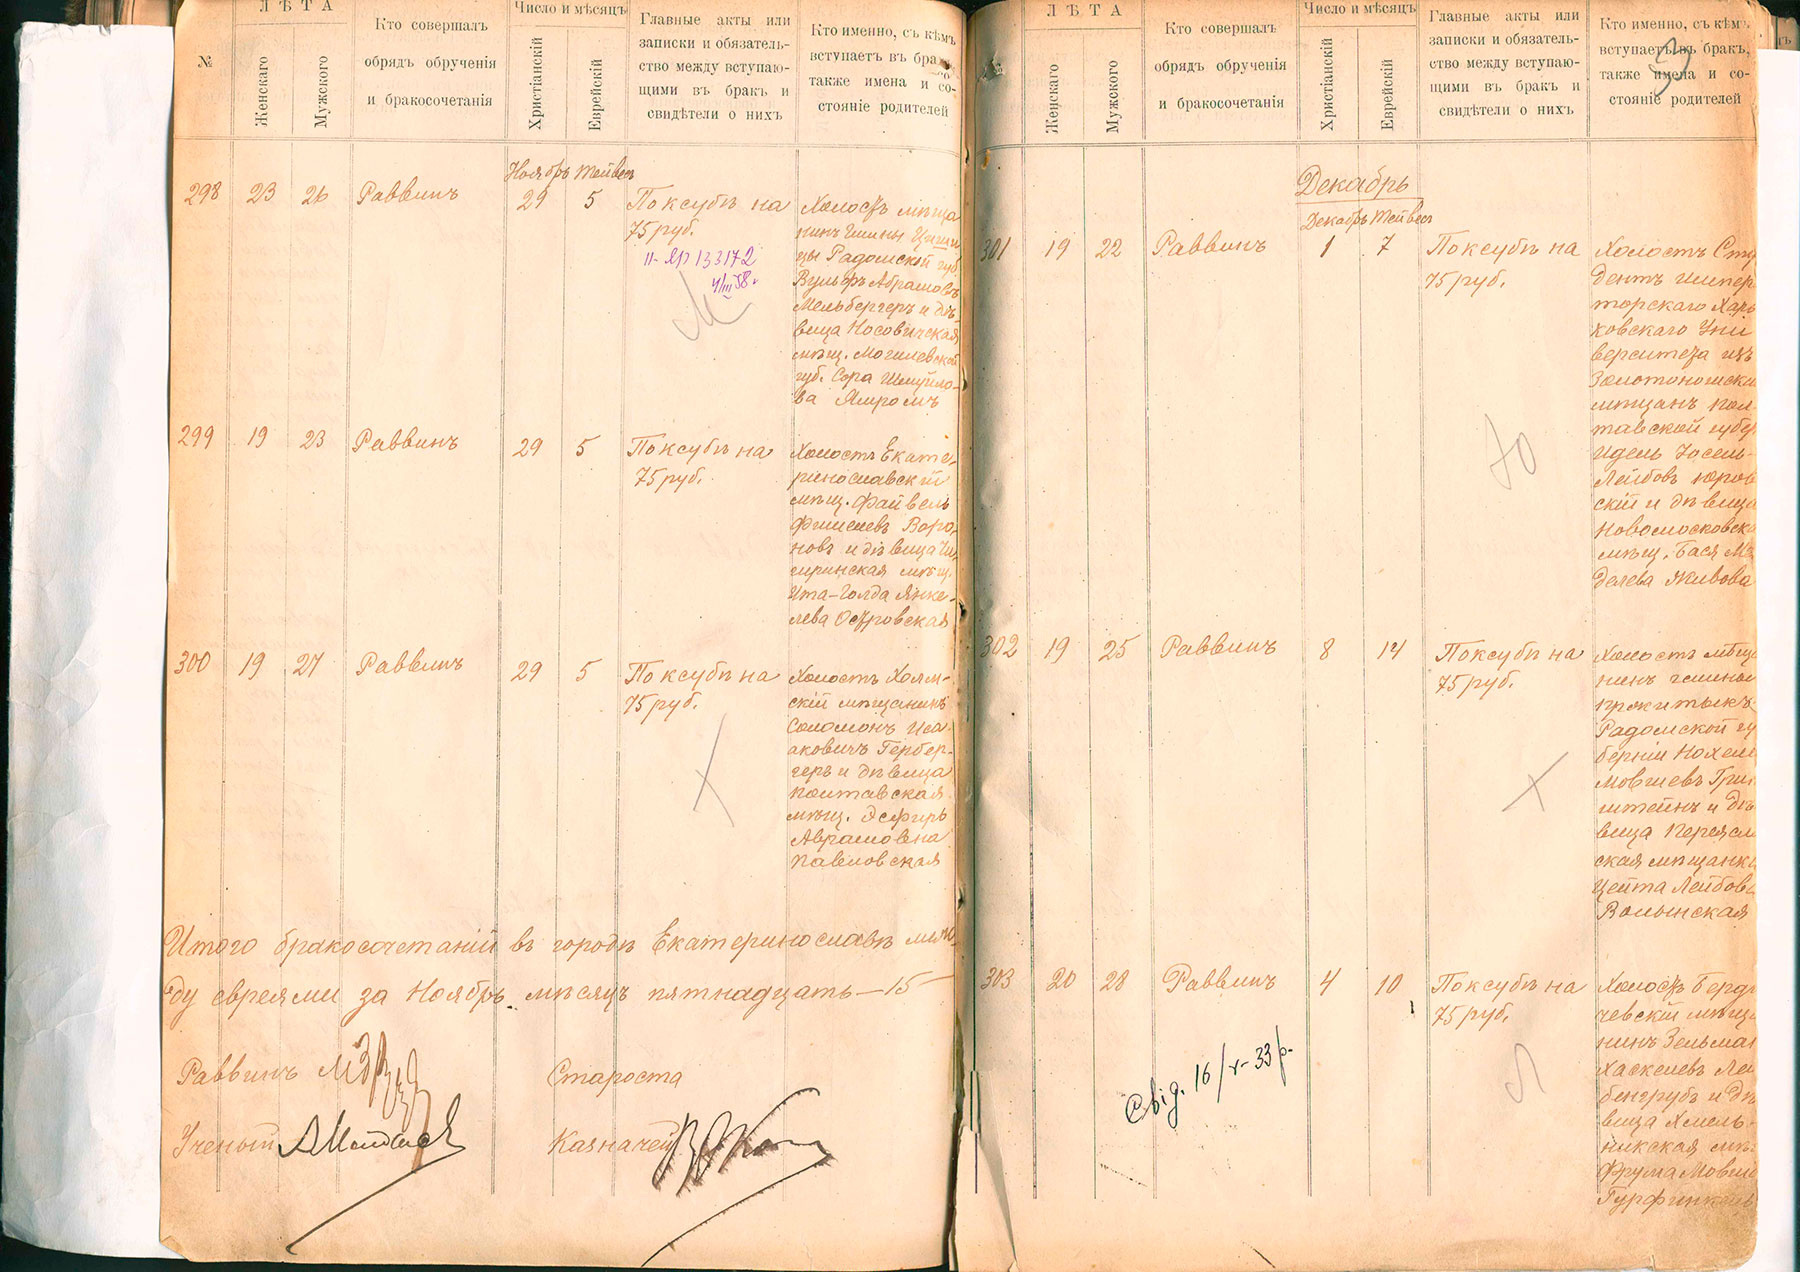 ЛѢТА
№
Женскаго
Мужского
Кто совершалъ
обрядъ обрученія
и бракосочетанія
Число и мѣсяцъ
Христіанскій
Еврейскій
Главные акты или
записки и обязатель-
ство между вступаю-
щими въ бракъ и
свидѣтели о нихъ
Кто именно, съ кѣмъ
вступаетъ въ бракъ
также имена и со-
стояніе родителей
Ноябрь Тейвесъ
298 23 26 Раввинъ 29 5
По ксубѣ на
75 руб.
133172
Холостъ мѣща
нинъ гмины
Радомской губ.
Вульфъ Абрамовъ
Мельбергеръ и дѣ-
вица Носовичская
мѣщ. Могилевской
губ. Сора Шмуйло-
ва Ямромъ
299 19 23 Раввинъ 29 5
По ксубѣ на
75 руб.
Холостъ Екате-
ринославскій
мѣщ. Файвель
Фишелевъ Воро-
новъ и дѣвица Чи-
гиринская мѣщ.
Ита-Голда Янке-
лева Островская
300 19 27 Раввинъ 29 5
По ксубѣ на
75 руб.
Холостъ Холм-
скій мѣщанинъ
Соломонъ Иса-
аковичъ Гербер-
геръ и дѣвица
Полтавская
мѣщ. Эсфирь
Абрамовна
Павловская
Итого бракосочетаній въ городѣ Екатеринославѣ меж-
ду евреями за Ноябрь мѣсяцъ пятнадцать — 15 —
Раввинъ
Староста
Ученый
Казначей
ЛѢТА
Женскаго
Мужского
Кто совершалъ
обрядъ обрученія
и бракосочетанія
Число и мѣсяцъ
Христіанскій
Еврейскій
Главные акты или
записки и обязатель-
ство между вступаю-
щими въ бракъ и
свидѣтели о нихъ
Кто именно, съ кѣмъ
вступаетъ въ бракъ,
также имена и со-
стояніе родителей
Декабрь
Декабрь Тейвесъ
301 19 22 Раввинъ 1 7
По ксубѣ на
75 руб.
Ю
Холостъ Сту
дентъ Импер
торскаго Харь
ковскаго Уни
верситета изъ
Золотоношски
мѣщанъ Пол-
тавской губер
Идель Іосель-
Лейбовъ Юров
скій и дѣвица
Новомосковск
мѣщ. Бася Ме
делева Якивова
302 19 25 Раввинъ 8 14
По ксубѣ на
75 руб.
Холостъ мѣща
нинъ гмины
Пржитыкъ
Радомской гу
берніи Нохем
Мовшевъ Грин
штейнъ и дѣ
вица Переясл
ская мѣщанка
Цейта Лейбова
Волынская
303 20 28 Раввинъ 4 10
По ксубѣ на
75 руб.
Л
Свід. 16/V-33 р.
Холостъ Берди
чевскій мѣща
нинъ Зельман
Хаскелевъ Лей
бенгрубъ и дѣ
вица Хмель-
никская мѣщ
Фрума Мовшо
Гурфинкель